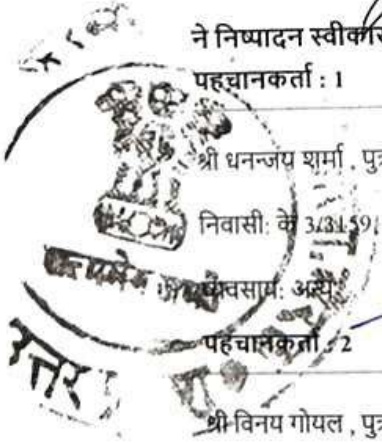 ने निष्पादन स्वीकार
पहचानकर्ता : 1
श्री धनन्जय शर्मा , पुत्र
निवासी: के 3/3159,
व्यवसाय: अन्य
पहचानकर्ता : 2
श्री विनय गोयल , पुत्र